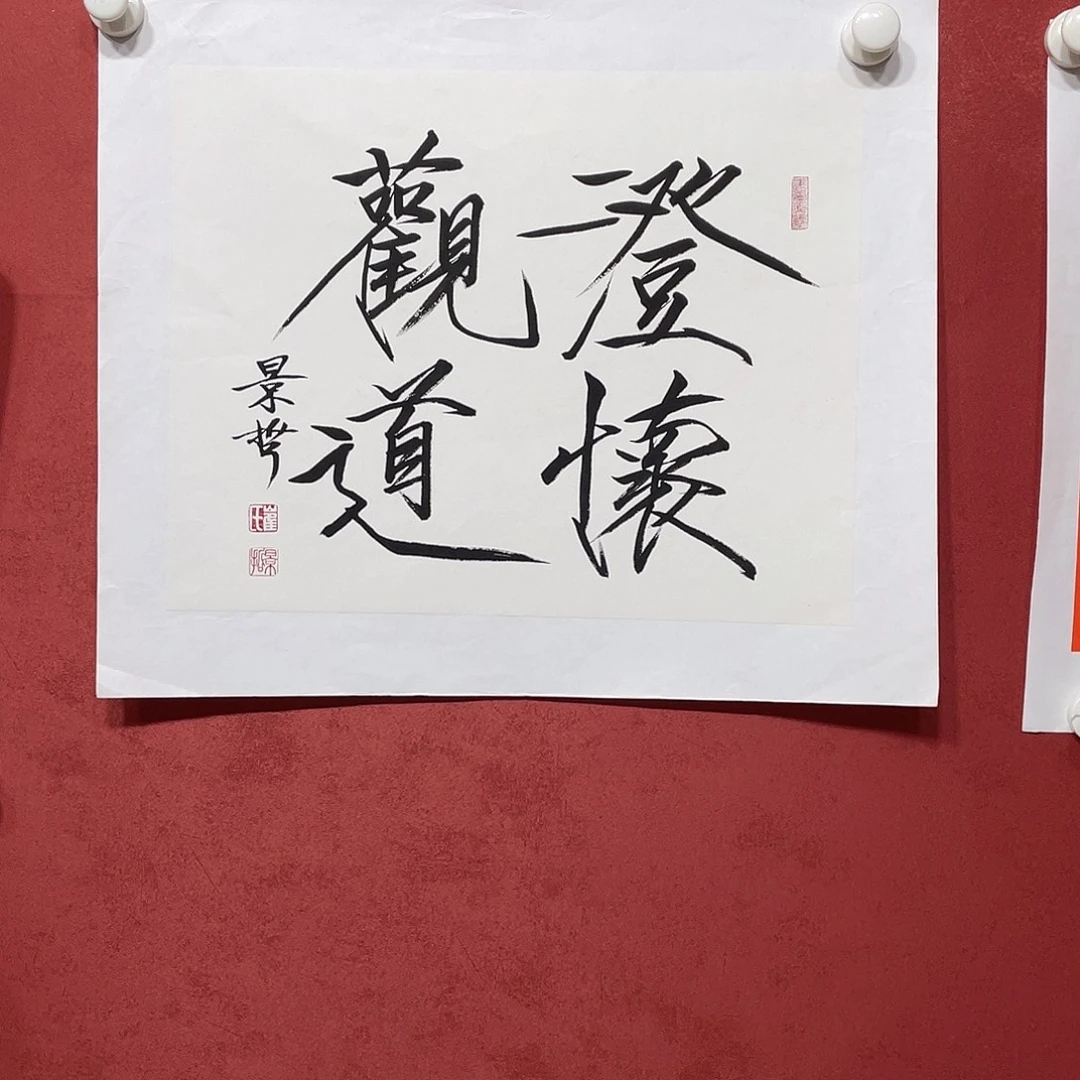 澄懷
觀道
景哲